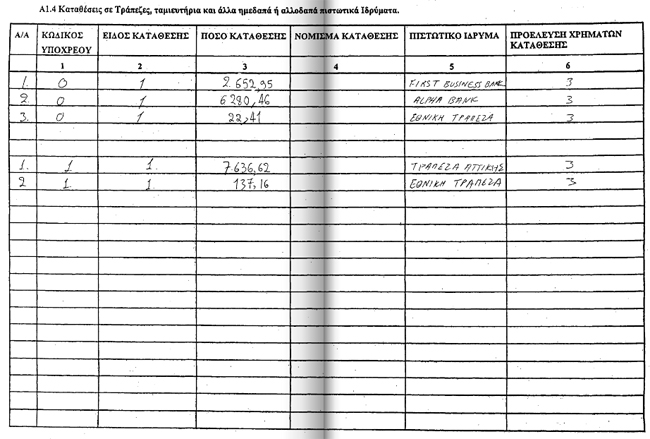 A1.4 Καταθέσεις σε Τράπεζες, ταμιευτήρια και άλλα ημεδαπά ή αλλοδαπά πιστωτικά Ιδρύματα.
Α/Α ΚΩΔΙΚΟΣ ΥΠΟΧΡΕΟΥ ΕΙΔΟΣ ΚΑΤΑΘΕΣΗΣ ΠΟΣΟ ΚΑΤΑΘΕΣΗΣ ΝΟΜΙΣΜΑ ΚΑΤΑΘΕΣΗΣ ΠΙΣΤΩΤΙΚΟ ΙΔΡΥΜΑ ΠΡΟΕΛΕΥΣΗ ΧΡΗΜΑΤΩΝ ΚΑΤΑΘΕΣΗΣ
1 2 3 4 5 6
1. 0 1 2.652,95 FIRST BUSINESS BANK 3
2. 0 1 6280,46 ALPHA BANK 3
3. 0 1 22,41 ΕΘΝΙΚΗ ΤΡΑΠΕΖΑ 3
1. 1 1. 7.636,62 ΤΡΑΠΕΖΑ ΑΤΤΙΚΗΣ 3
2 1. 1 137,16 ΕΘΝΙΚΗ ΤΡΑΠΕΖΑ 3